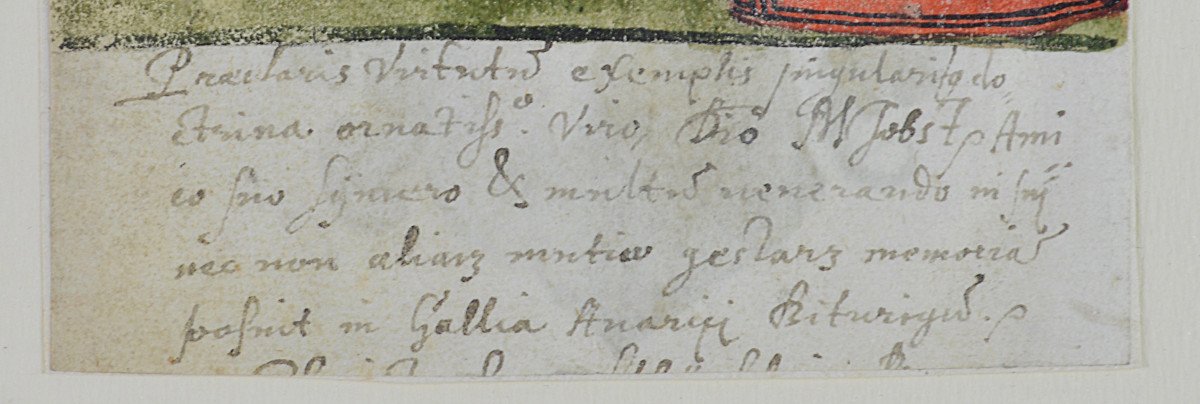 Præclaris Virtutū exemplis singulariq; do-
ctrina ornatiss⁰. Viro, Dño M Jobst, Ami
co suo syncero & multū uenerando in sui
nec non aliarꝫ mutuæ gestarꝫ memoriā
posuit in Gallia Auarici Biturigū.